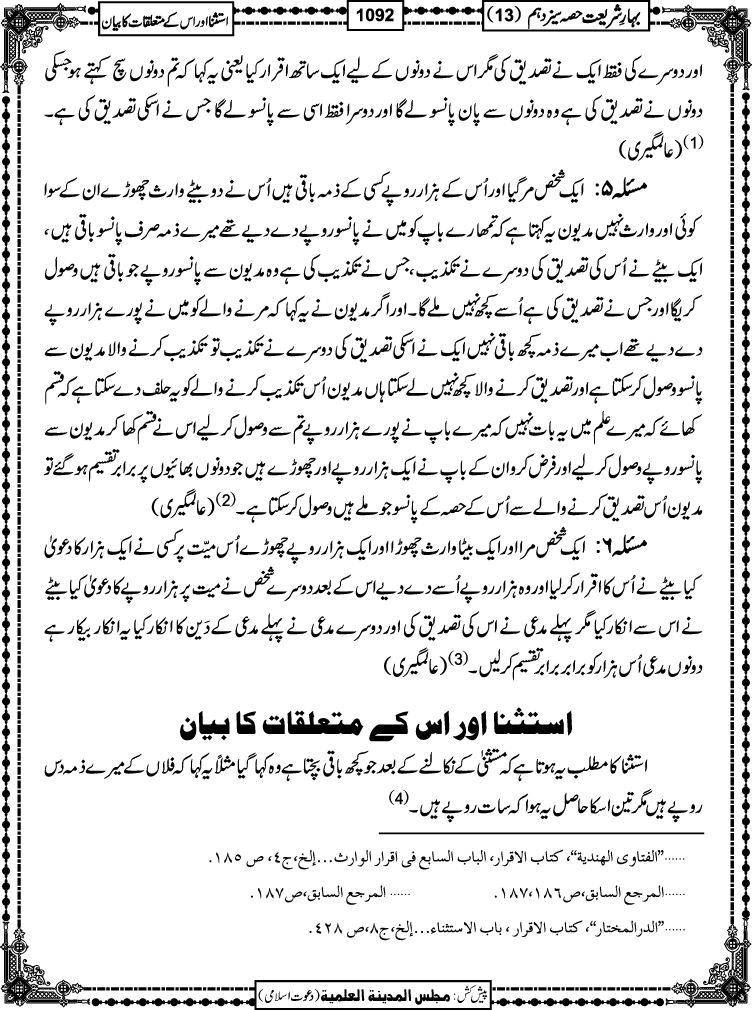 بہارِ شریعت حصہ سیزدہم (13)
1092
استثنا اور اس کے متعلقات کا بیان
اور دوسرے کی فقط ایک نے تصدیق کی مگر اس نے دونوں کے لیے ایک ساتھ اقرار کیا یعنی یہ کہا کہ تم دونوں سچ کہتے ہو جسکی
دونوں نے تصدیق کی ہے وہ دونوں سے پان پانسو لے گا اور دوسرا فقط اسی سے پانسو لے گا جس نے اسکی تصدیق کی ہے۔
(1) (عالمگیری)
مسئلہ ۵: ایک شخص مر گیا اور اُس کے ہزار روپے کسی کے ذمہ باقی ہیں اُس نے دو بیٹے وارث چھوڑے ان کے سوا
کوئی اور وارث نہیں مدیون یہ کہتا ہے کہ تمھارے باپ کو میں نے پانسو روپے دے دیے تھے میرے ذمہ صرف پانسو باقی ہیں،
ایک بیٹے نے اُس کی تصدیق کی دوسرے نے تکذیب ،جس نے تکذیب کی ہے وہ مدیون سے پانسو روپے جو باقی ہیں وصول
کریگا اور جس نے تصدیق کی ہے اُسے کچھ نہیں ملے گا۔ اور اگر مدیون نے یہ کہا کہ مرنے والے کو میں نے پورے ہزار روپے
دے دیے تھے اب میرے ذمہ کچھ باقی نہیں ایک نے اسکی تصدیق کی دوسرے نے تکذیب تو تکذیب کرنے والا مدیون سے
پانسو وصول کر سکتا ہے اور تصدیق کرنے والا کچھ نہیں لے سکتا ہاں مدیون اُس تکذیب کرنے والے کو یہ حلف دے سکتا ہے کہ قسم
کھائے کہ میرے علم میں یہ بات نہیں کہ میرے باپ نے پورے ہزار روپے تم سے وصول کر لیے اس نے قسم کھا کر مدیون سے
پانسو روپے وصول کر لیے اور فرض کرو ان کے باپ نے ایک ہزار روپے اور چھوڑے ہیں جو دونوں بھائیوں پر برابر تقسیم ہو گئے تو
مدیون اُس تصدیق کرنے والے سے اُس کے حصہ کے پانسو جو ملے ہیں وصول کر سکتا ہے۔(2) (عالمگیری)
مسئلہ ۶: ایک شخص مرا اور ایک بیٹا وارث چھوڑا اور ایک ہزار روپے چھوڑے اُس میّت پر کسی نے ایک ہزار کا دعویٰ
کیا بیٹے نے اُس کا اقرار کر لیا اور وہ ہزار روپے اُسے دے دیے اس کے بعد دوسرے شخص نے میت پر ہزار روپے کا دعویٰ کیا بیٹے
نے اس سے انکار کیا مگر پہلے مدعی نے اس کی تصدیق کی اور دوسرے مدعی نے پہلے مدعی کے دَین کا انکار کیا یہ انکار بیکار ہے
دونوں مدعی اُس ہزار کو برابر برابر تقسیم کر لیں۔(3) (عالمگیری)
استثنا اور اس کے متعلقات کا بیان
استثنا کا مطلب یہ ہوتا ہے کہ مستثنیٰ کے نکالنے کے بعد جو کچھ باقی بچتا ہے وہ کہا گیا مثلاً یہ کہا کہ فلاں کے میرے ذمہ دس
روپے ہیں مگر تین اسکا حاصل یہ ہوا کہ سات روپے ہیں۔(4)
......"الفتاوی الھندیة"، کتاب الاقرار، الباب السابع فی اقرار الوارث...إلخ،ج٤، ص ١٨٥.
......المرجع السابق،ص١٨٦،١٨٧. ......المرجع السابق،ص١٨٧.
......"الدرالمختار"، کتاب الاقرار ، باب الاستثناء...إلخ،ج٨،ص ٤٢٨.
پیش کش: مجلس المدینة العلمیة (دعوت اسلامی)